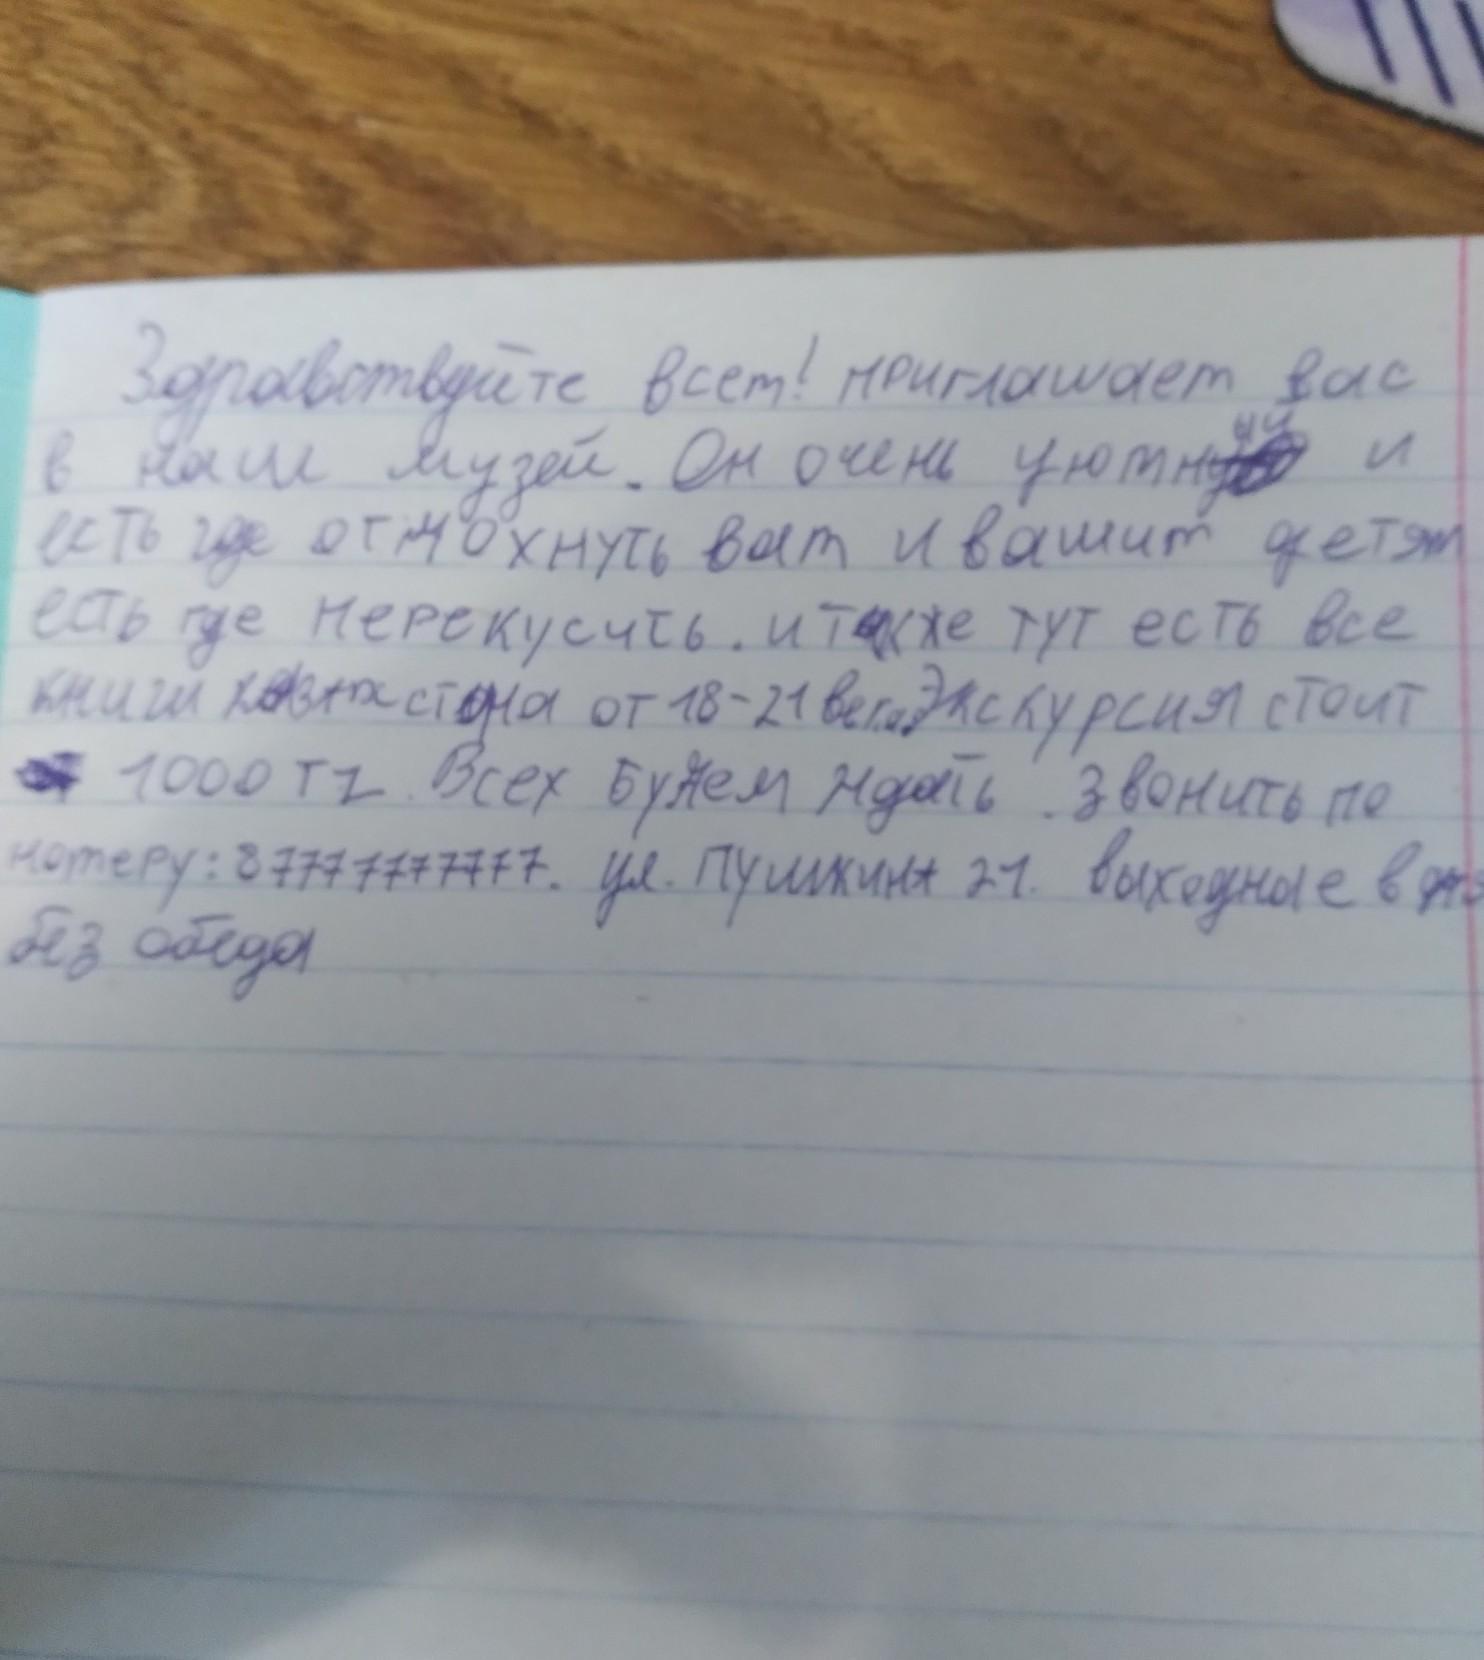 Здравствуйте всем! приглашаем вас
в наш музей. Он очень уютный и
есть где отдохнуть вам и вашим детям
есть где перекусить. и также тут есть все
книги казахстана от 18-21 века. Экскурсия стоит
1000 тг. Всех будем ждать. звонить по
номеру: 87777777777. ул. Пушкина 21. выходные в
без обеда